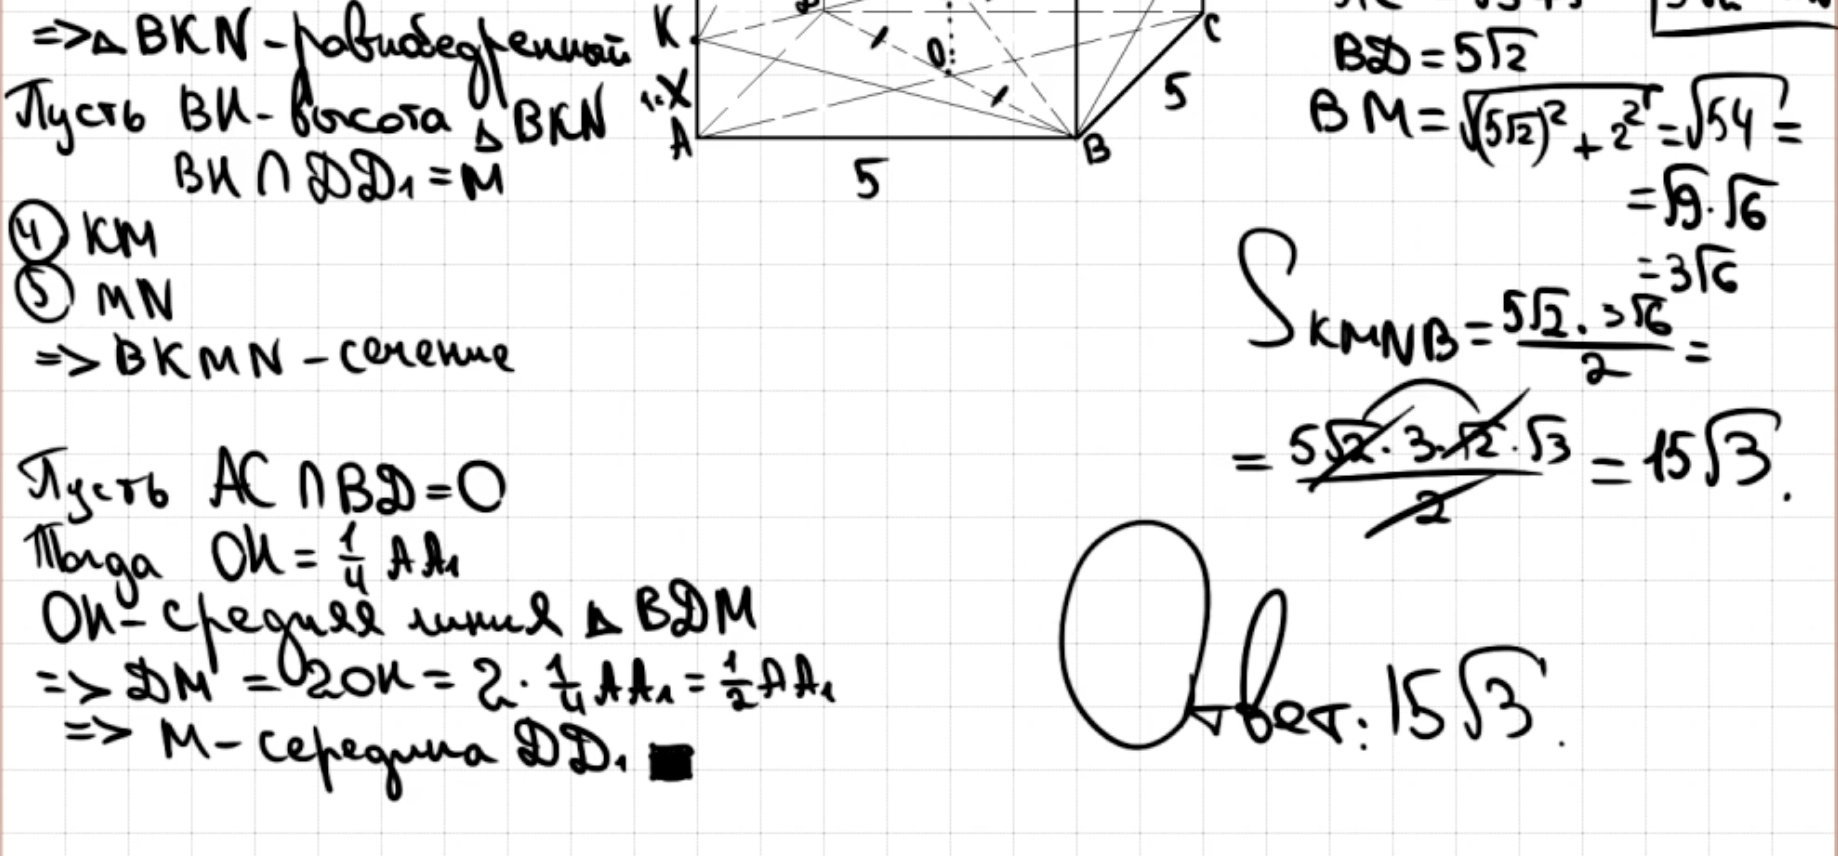 => △ BKN - равнобедренный
Пусть BH - высота △ BKN
BH ∩ DD₁ = M
④ KM
⑤ MN
=> BKMN - сечение
Пусть AC ∩ BD = O
Тогда OH = 1/4 AA₁
OH - средняя линия △ BDM
=> DM = 2OH = 2 · 1/4 AA₁ = 1/2 AA₁
=> M - середина DD₁ ■
K
1·X
A
O
C
B
5
5
BD = 5√2
BM = √((5√2)² + 2²) = √54 =
= √9 · √6
= 3√6
S KMNB = (5√2 · 3√6)/2 =
= (5√2 · 3 · √2 · √3)/2 = 15√3.
Ответ: 15√3.